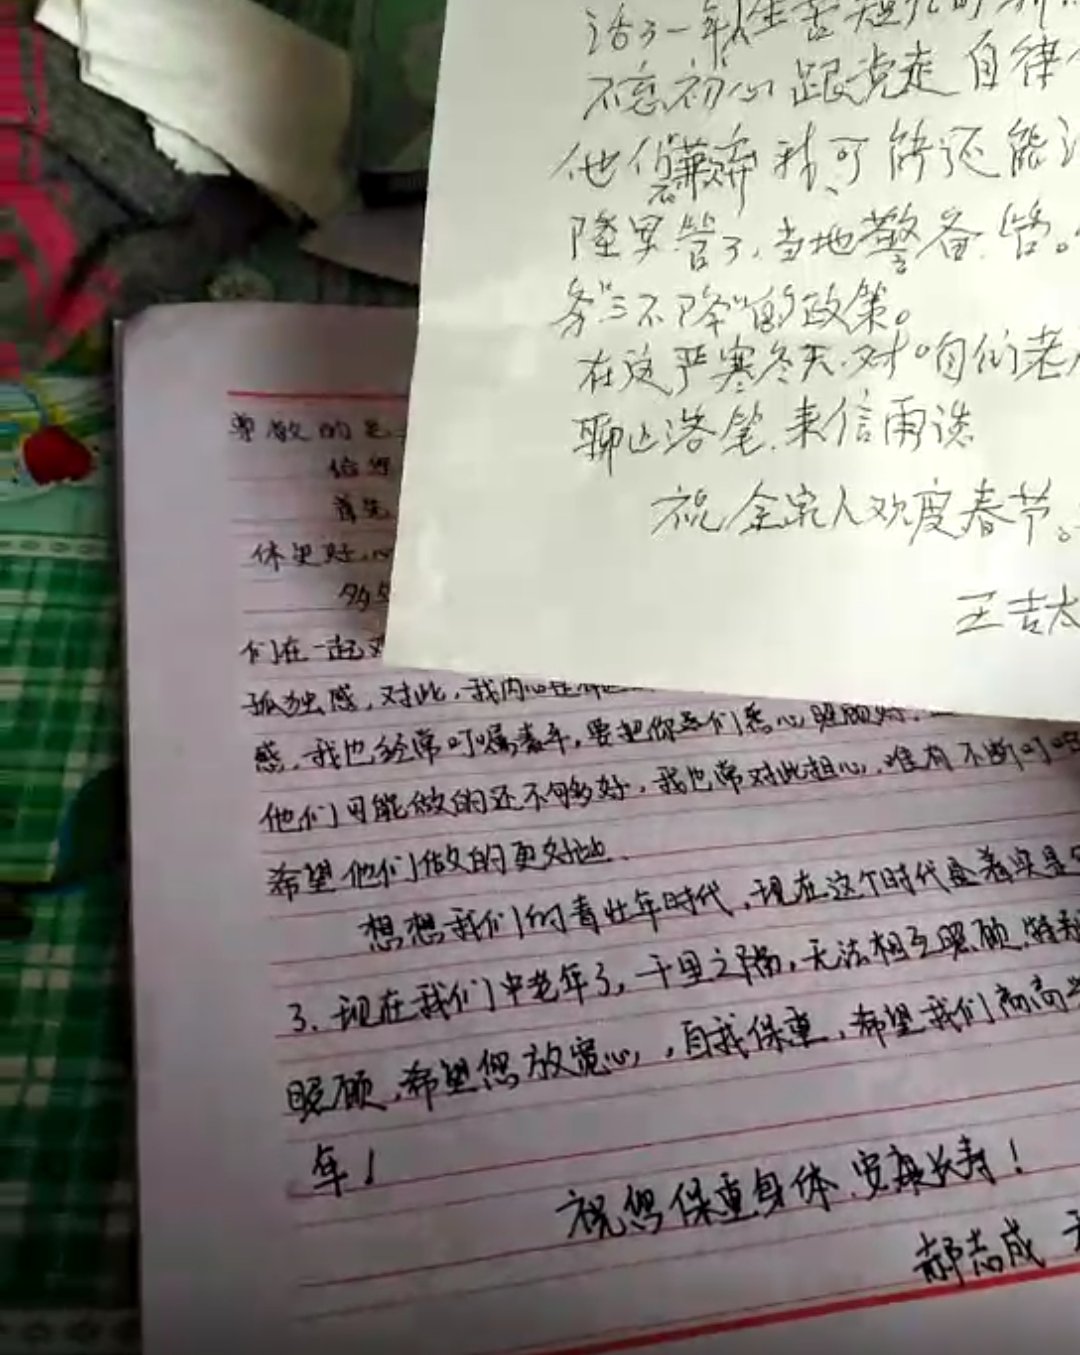 活了一年
不忘初心 跟党走 自律
他们 我可能还能
降 管了,当地警备 管。
务“三不降”的政策。
在这严寒冬天.对咱们老
聊 落笔.来信再谈
祝全家人欢度春节。
王吉太
尊敬的
给您
首先
体更好,心
们在一起
孤独感,对此,我内心
感,我也经常叮嘱 ,要把你 们悉心照顾好,
他们可能做的还不够多好,我也常对此担心,唯有不断叮
希望他们做的更好
想想我们的青壮年时代,现在这个时代 着实是
了.现在我们中老年了,千里之隔,无法相互照顾.特
照顾,希望您放宽心,,自我保重,希望我们高高
年!
祝您保重身体.安康长寿!
郝志成